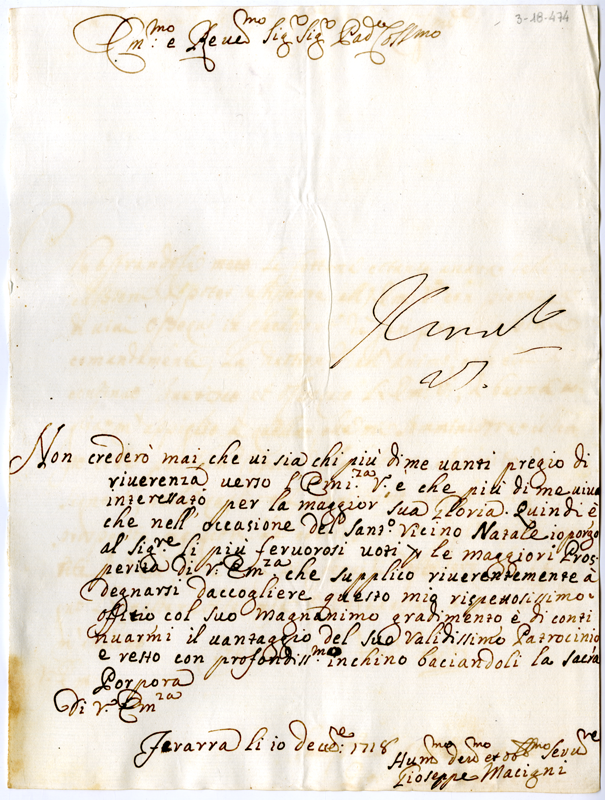 3-18-474
Em:mo e Reve:mo Sig:r Sig:r Pad:e Coll:mo
Non crederò mai che ui sia chi più di me uanti pregio di
riuerenza uerso l'Emi:za V:a e che più di me uiua
interessato per la maggior sua Gloria. Quindi è
che nell'occasione del sant:o Vicino Natale io porgo
al Sig:re li più feruorosi uoti p le maggiori Pros-
perità di V:a Em:za che supplico riuerentemente à
degnarsi daccogliere questo mio rispettosissimo
offitio col suo Magnanimo gradimento è di conti
nuarmi il uantaggio del suo Validissimo Patrocinio
e resto con profondiss:mo inchino baciandoli la sacra
Porpora
Di V:a Em:za
Ferarra li 10 decē: 1718
Hum:mo deu:mo et obb:mo Seru:re
Gioseppe Macigni